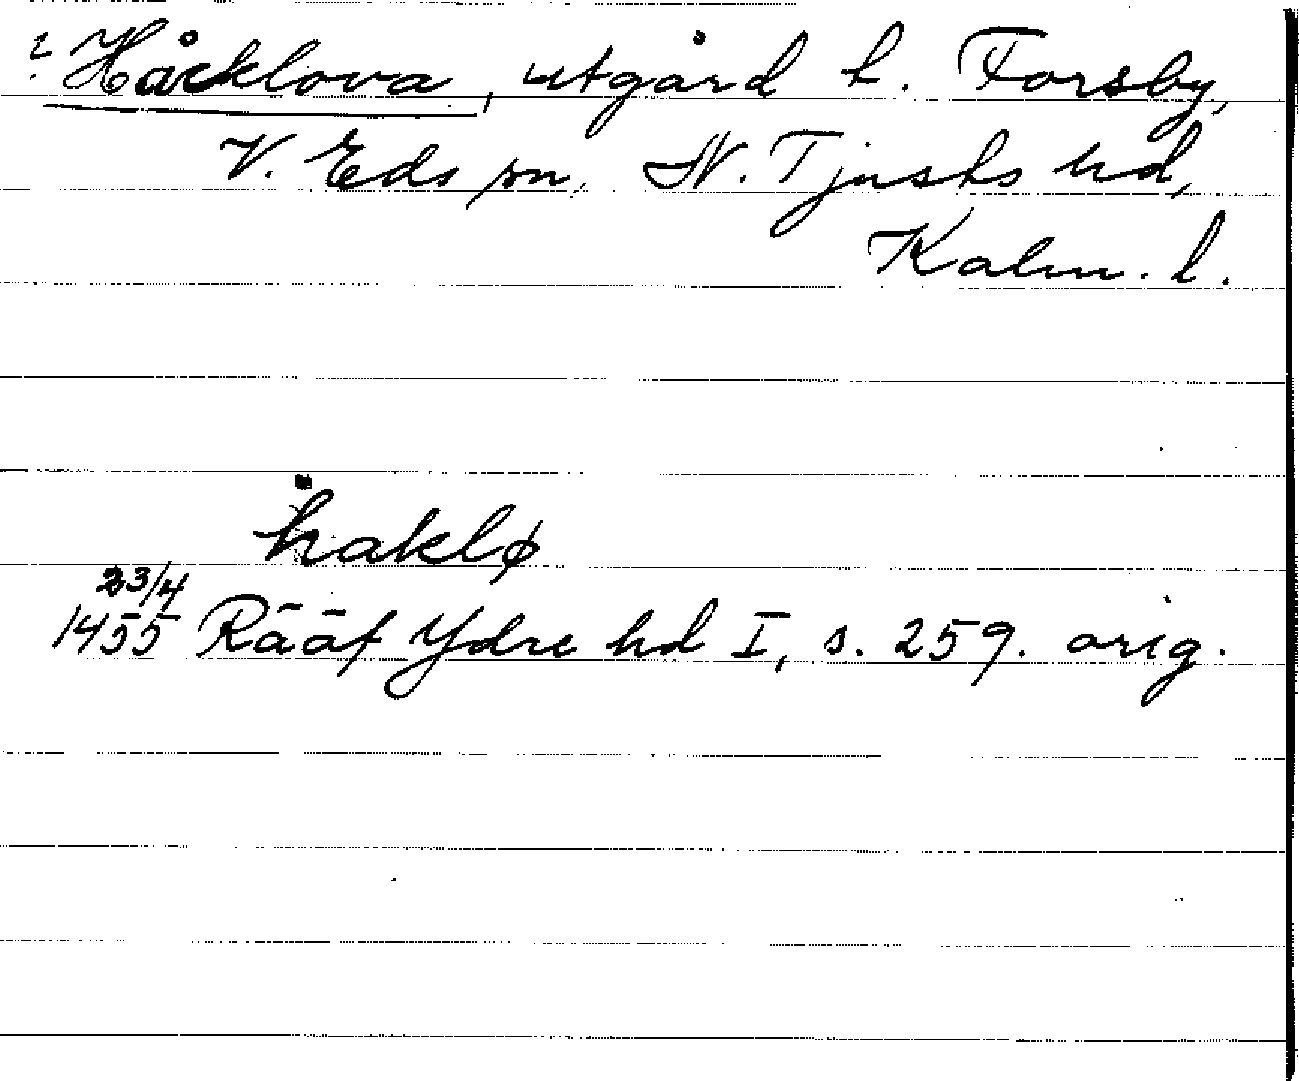 ? Håcklova, utgård t. Forsby,
V. Eds sn, N. Tjusts hd,
Kalm. l.
haklø
23/4
1455 Rääf Ydre hd I, s. 259. orig.